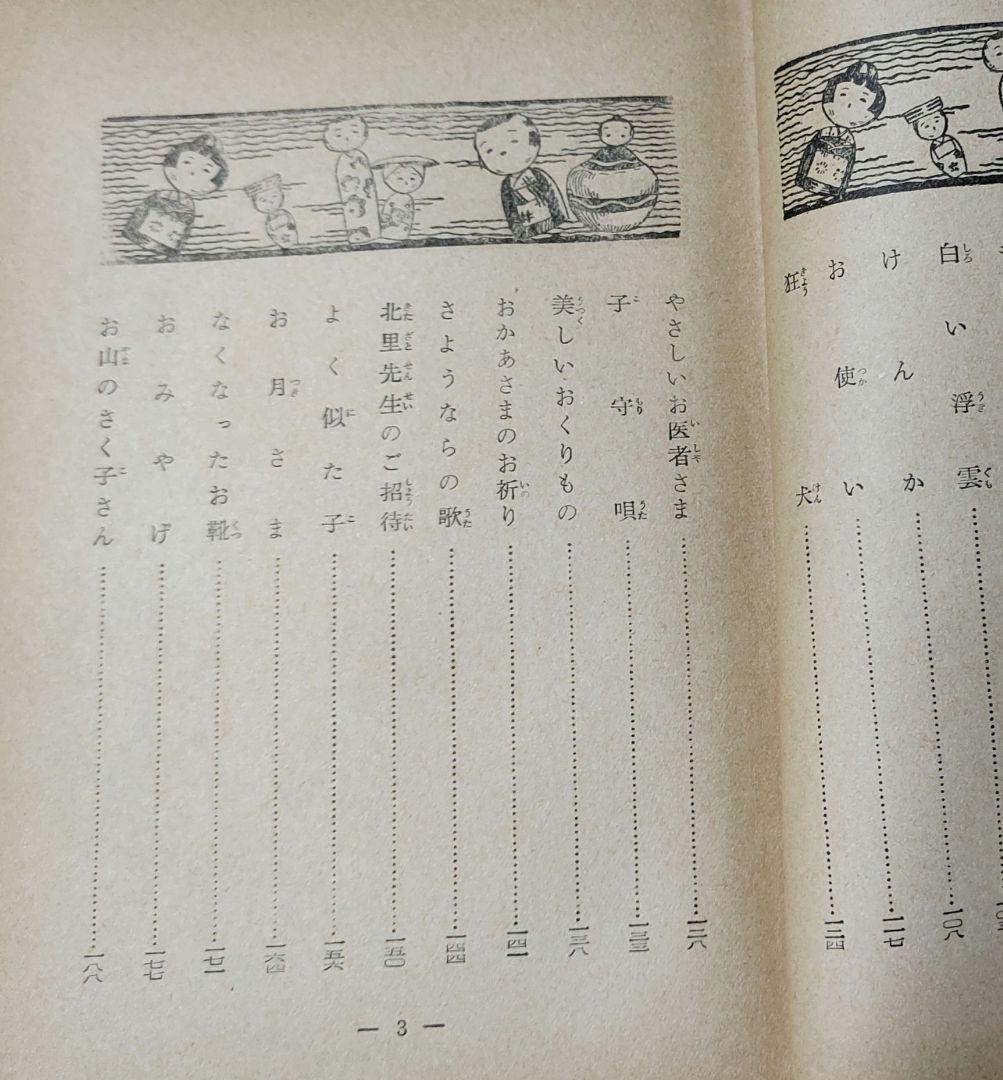 白い浮雲
けんか……一〇八
お使い……一一七
狂犬……一二四
やさしいお医者さま……一二八
子守唄……一三三
美しいおくりもの……一三八
おかあさまのお祈り……一四一
さようならの歌……一四四
北里先生のご招待……一五〇
よく似た子……一五六
お月さま……一六四
なくなったお靴……一七一
おみやげ……一七七
お山のさく子さん……一八八
— 3 —